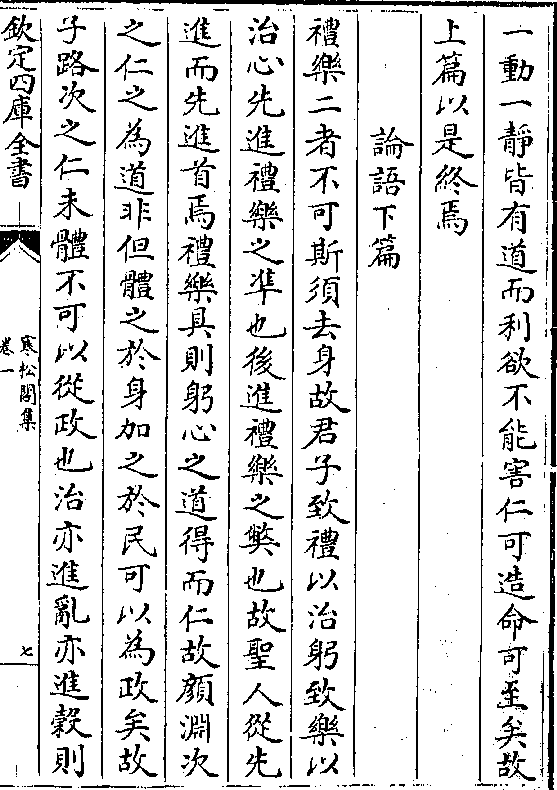 一動一靜皆有道而利欲不能害仁可造命可至矣故
上篇以是終焉
論語下篇
禮樂二者不可斯須去身故君子致禮以治躬致樂以
治心先進禮樂之準也後進禮樂之獘也故聖人從先
進而先進首焉禮樂具則躬心之道得而仁故顔淵次
之仁之為道非但體之於身加之於民可以為政矣故
子路次之仁未體不可以從政也治亦進亂亦進穀則
欽定四庫全書
寒松閣集
卷一
七